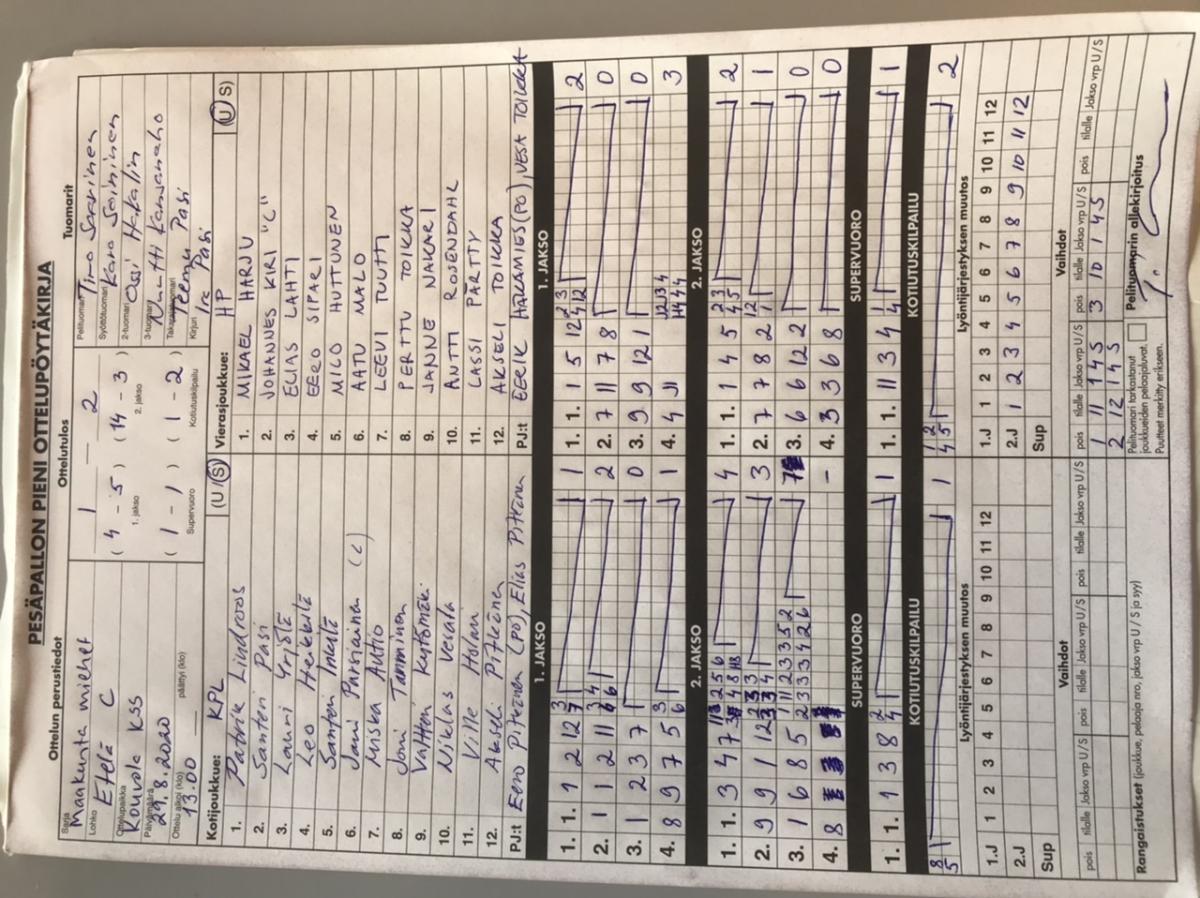 PESÄPALLON PIENI OTTELUPÖYTÄKIRJA
Ottelun perustiedot
Sarja
Maakunta miehet
Lohko
Etelä C
Ottelupaikka
Kouvola KSS
Päivämäärä
29.8.2020
Ottelu alkoi (klo)
13.00
päättyi (klo)
Ottelutulos
1 — 2
( 4 - 5 ) ( 14 - 3 )
1. jakso 2. jakso
( 1 - 1 ) ( 1 - 2 )
Supervuoro Kotiutuskilpailu
Tuomarit
Pelituomari
Timo Saarinen
Syöttötuomari
2-tuomari
Ossi Hakalin
3-tuomari
Takatuomari
Teemu Pasi
Kirjuri
Pasi
Kotijoukkue: KPL (U / S)
1. Patrik Lindroos
2. Santeri Pasi
3. Lauri Yrjölä
4. Leo Heikkilä
5. Santeri Inkilä
6. Jani Parviainen (C)
7. Miska Autio
8. Joni Tamminen
9. Valtteri Kytömäki
10. Niklas Vessala
11. Ville Holmi
12. Akseli Pitkänen
PJ:t Eero Pitkänen (PO), Elias Pitkänen
Vierasjoukkue: HP (U/ S)
1. MIKAEL HARJU
2. JOHANNES KIRI "C"
3. ELIAS LAHTI
4. EERO SIPARI
5. MILO HUTTUNEN
6. AATU MALO
7. LEEVI TUUTTI
8. PERTTU TOIKKA
9. JANNE NAKARI
10. ANTTI ROSENDAHL
11. LASSI PÄRTTY
12. AKSELI TOIKKA
PJ:t EERIK HAKAMIES (PO), VESA TOIKKA
1. JAKSO
1. 1. 1 2 12 1
2. 1 1 2 11 2
3. 1 2 3 7 0
4. 8 9 7 5 1
1. JAKSO
1. 1. 1 5 12 2
2. 7 11 7 8 0
3. 9 9 12 1 0
4. 4 11 3
2. JAKSO
1. 1. 3 4 7 4
2. 9 9 1 12 3
3. 1 6 8 5 7
4. 8 -
2. JAKSO
1. 1. 1 4 5 2
2. 7 7 8 2 1
3. 6 6 12 2 0
4. 3 3 6 8 0
SUPERVUORO
1. 1. 1 3 8 1
SUPERVUORO
1. 1. 11 3 4 1
KOTIUTUSKILPAILU
8 5 1
KOTIUTUSKILPAILU
2
Lyöntijärjestyksen muutos
1.J 1 2 3 4 5 6 7 8 9 10 11 12
2.J
Sup
Lyöntijärjestyksen muutos
1.J 1 2 3 4 5 6 7 8 9 10 11 12
2.J 1 2 3 4 5 6 7 8 9 10 11 12
Sup
Vaihdot
pois tilalle Jakso vrp U/S pois tilalle Jakso vrp U/S pois tilalle Jakso vrp U/S
Vaihdot
pois tilalle Jakso vrp U/S pois tilalle Jakso vrp U/S pois tilalle Jakso vrp U/S
1 11 1 4 S 3 10 1 4 S
2 12 1 4 S
Rangaistukset (joukkue, pelaaja nro, jakso vrp U / S ja syy)
Pelituomari tarkastanut
joukkueiden pelaajaluvat.
Puutteet merkitty erikseen.
Pelituomarin allekirjoitus